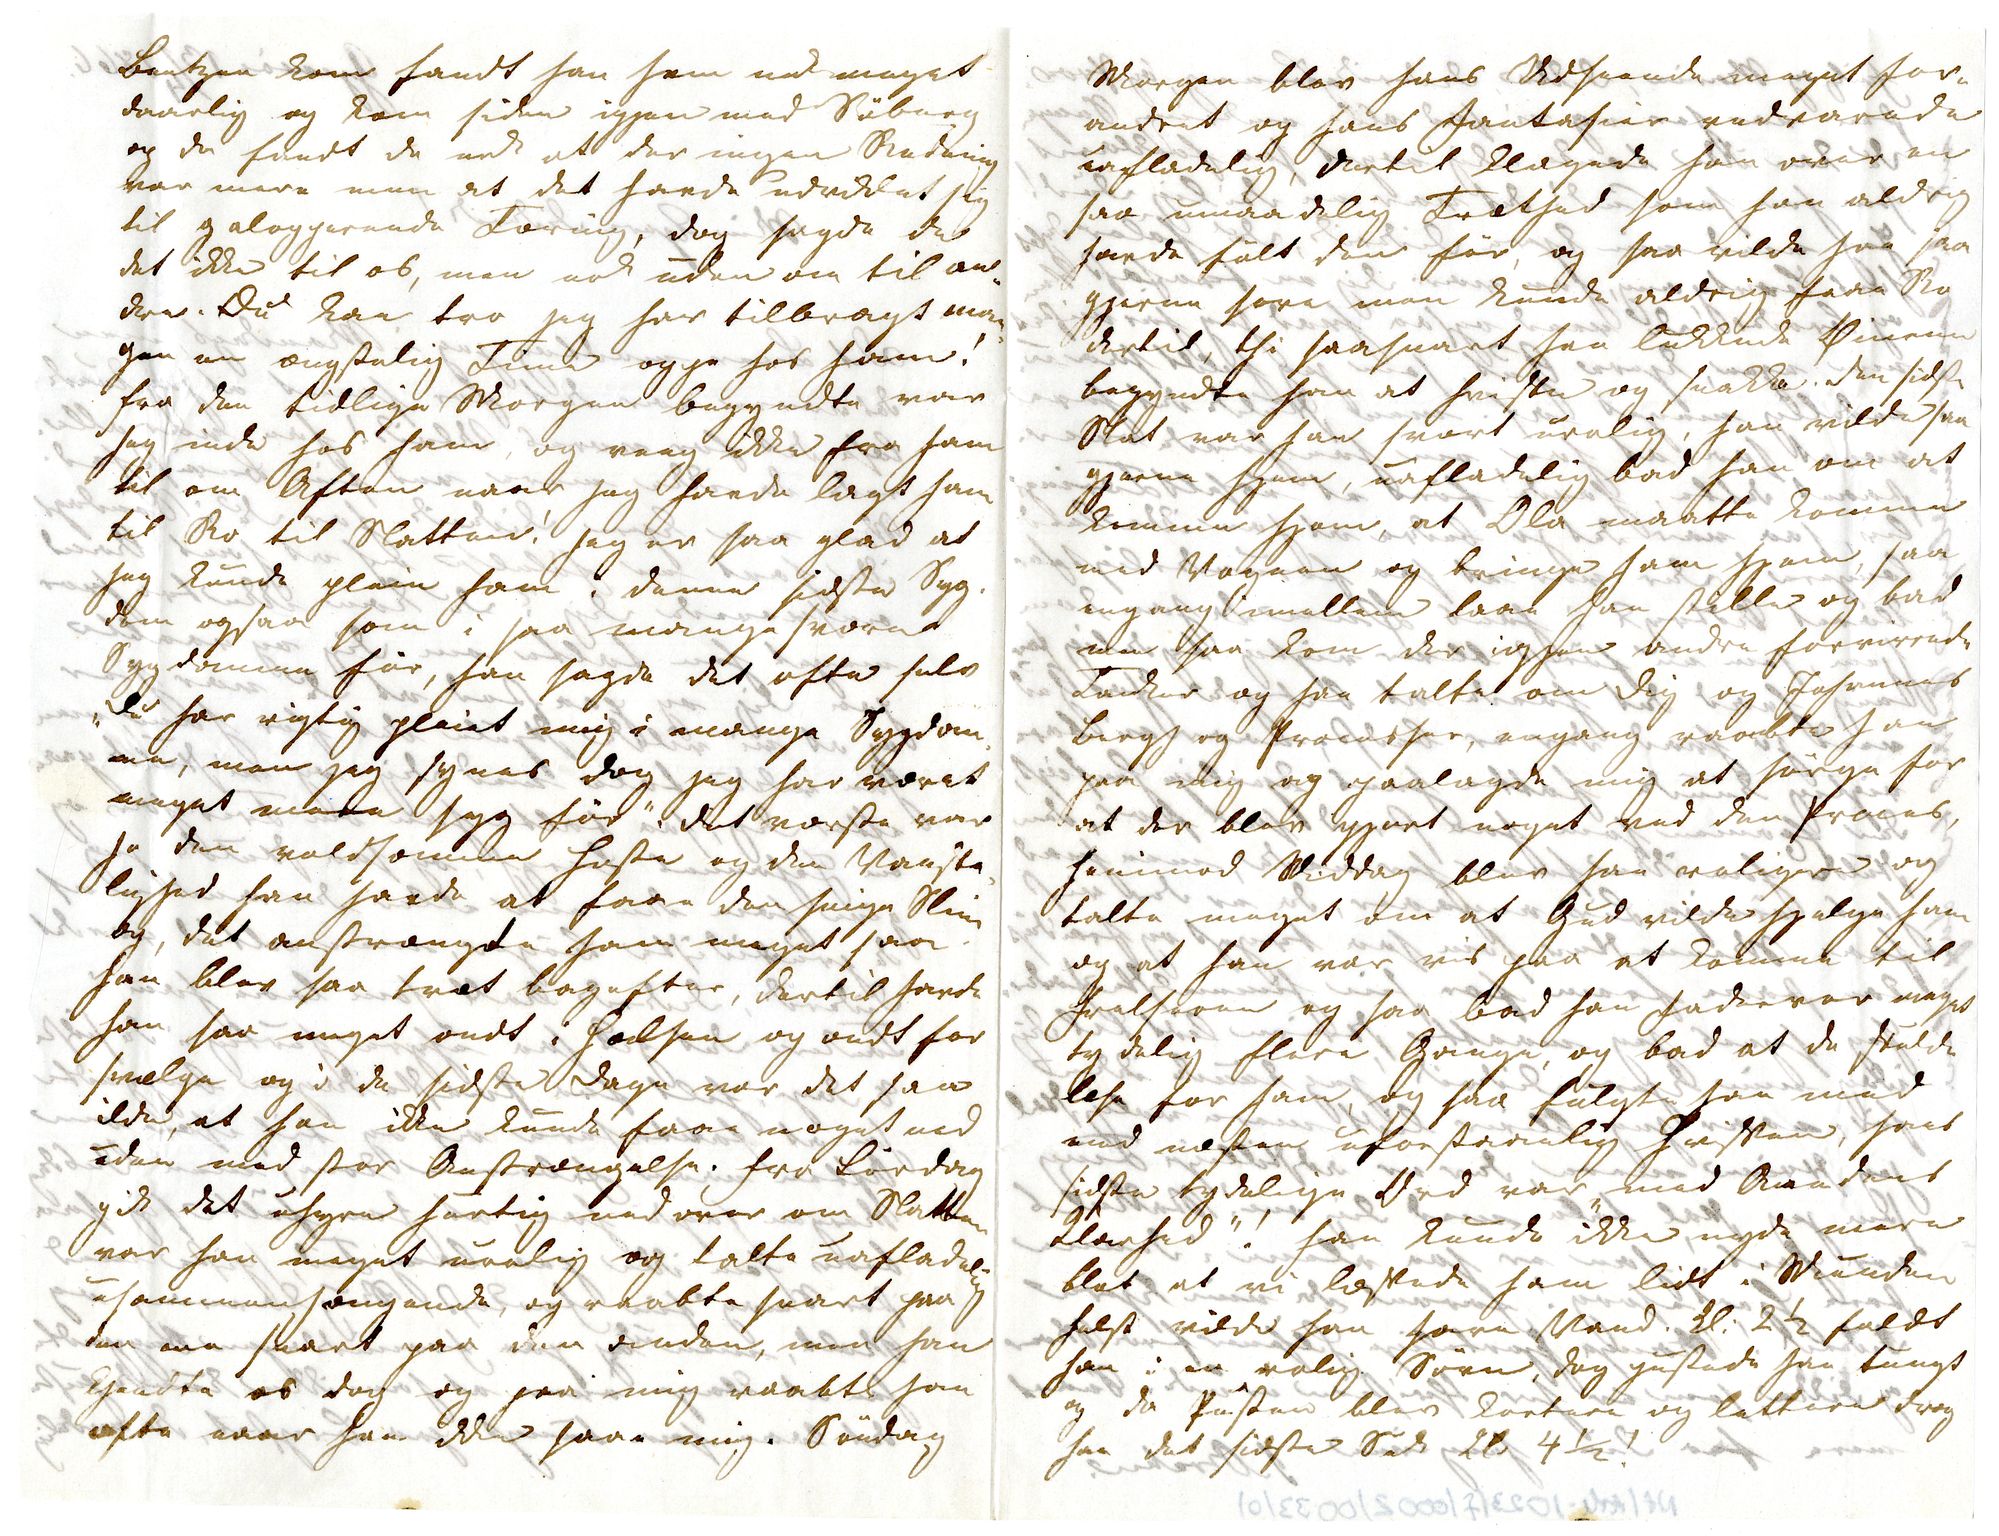 Bentzen kom fandt han ham nok meget
daarlig og kom siden igjen med Söberg
og da fandt de nok at der ingen Redning
var mere men at det havde udviklet sig
til galopperende Tæring, dog sagde de
det ikke til os, men nok uden om til an-
dre. Du kan tro jeg har tilbragt man-
gen en ængstelig Time oppe hos ham!
fra den tidlige Morgen begyndte var
jeg inde hos ham, og veeg ikke fra ham
til om Aften naar jeg havde lagt ham
til Ro til Natten! jeg er saa glad at
jeg kunde pleie ham i denne sidste Syg-
dom ogsaa som i saa mange svære
Sygdomme för, han sagde det ofte selv
"Du har rigtig pleiet mig i mange Sygdom-
me, men jeg synes dog jeg har været
meget mere syg för". det værste var
jo den voldsomme Hoste og den Vanske-
lighed han havde at faae den seige Sliim
op, det anstrængte ham meget saa
han blev saa træt bagefter, dertil havde
han saa meget ondt i Halsen og ondt for
svælge og i de sidste Dage var det saa
ilde, at han ikke kunde faae noget ned
uden med stor Anstrængelse. fra Lördag
gik det uhyre hurtig nedover om Natten
var han meget urolig og talte uafladelig
usammenhængende, og raabte snart paa
den ene snart paa den anden, men han
kjendte os dog og paa mig raabte han
ofte naar han ikke saae mig. Söndag
Morgen blev hans Udseende meget for-
andret og hans Fantasier vedvarede
uafladelig, dertil klagede han over en
saa umaadelig Træthed som han aldrig
havde fölt den för, og saa vilde han saa
gjerne sove men kunde aldrig faae Ro
dertil, thi saasnart han lukkede Öinene
begyndte han at hviske og snakke. den sidste
Nat var han svært urolig, han vilde saa
gjerne hjem, uafladelig bad han om at
komme hjem, at Ola maatte komme
med Vognen og bringe ham hjem, saa
engang imellem laae han stille og bad
men saa kom der igjen andre forvirrede
Tanker og han talte om Dig og Johannes
Bergh og Processer, engang raabte han
paa mig og paalagde mig at sörge for
at der blev gjort noget ved den Proces,
henimod Middag blev han roligere og
talte meget om at Gud vilde hjelpe ham
og at han var vis paa at komme til
Frelseren og saa bad han Fadervor meget
tydelig flere Gange, og bad at de skulde
læse for ham, og saa fulgte han med
med næsten uforstaaelig Hvisken, hans
sidste tydelige Ord var "med Aandens
Klarhed"! han kunde ikke nyde mere
blot at vi læskede ham lidt i Munden
helst vilde han have Vand. Kl: 2½ faldt
han i en rolig Sövn, dog pustede han tungt
og da Pusten blev kortere og lettere drog
han det sidste Suk Kl 4½!